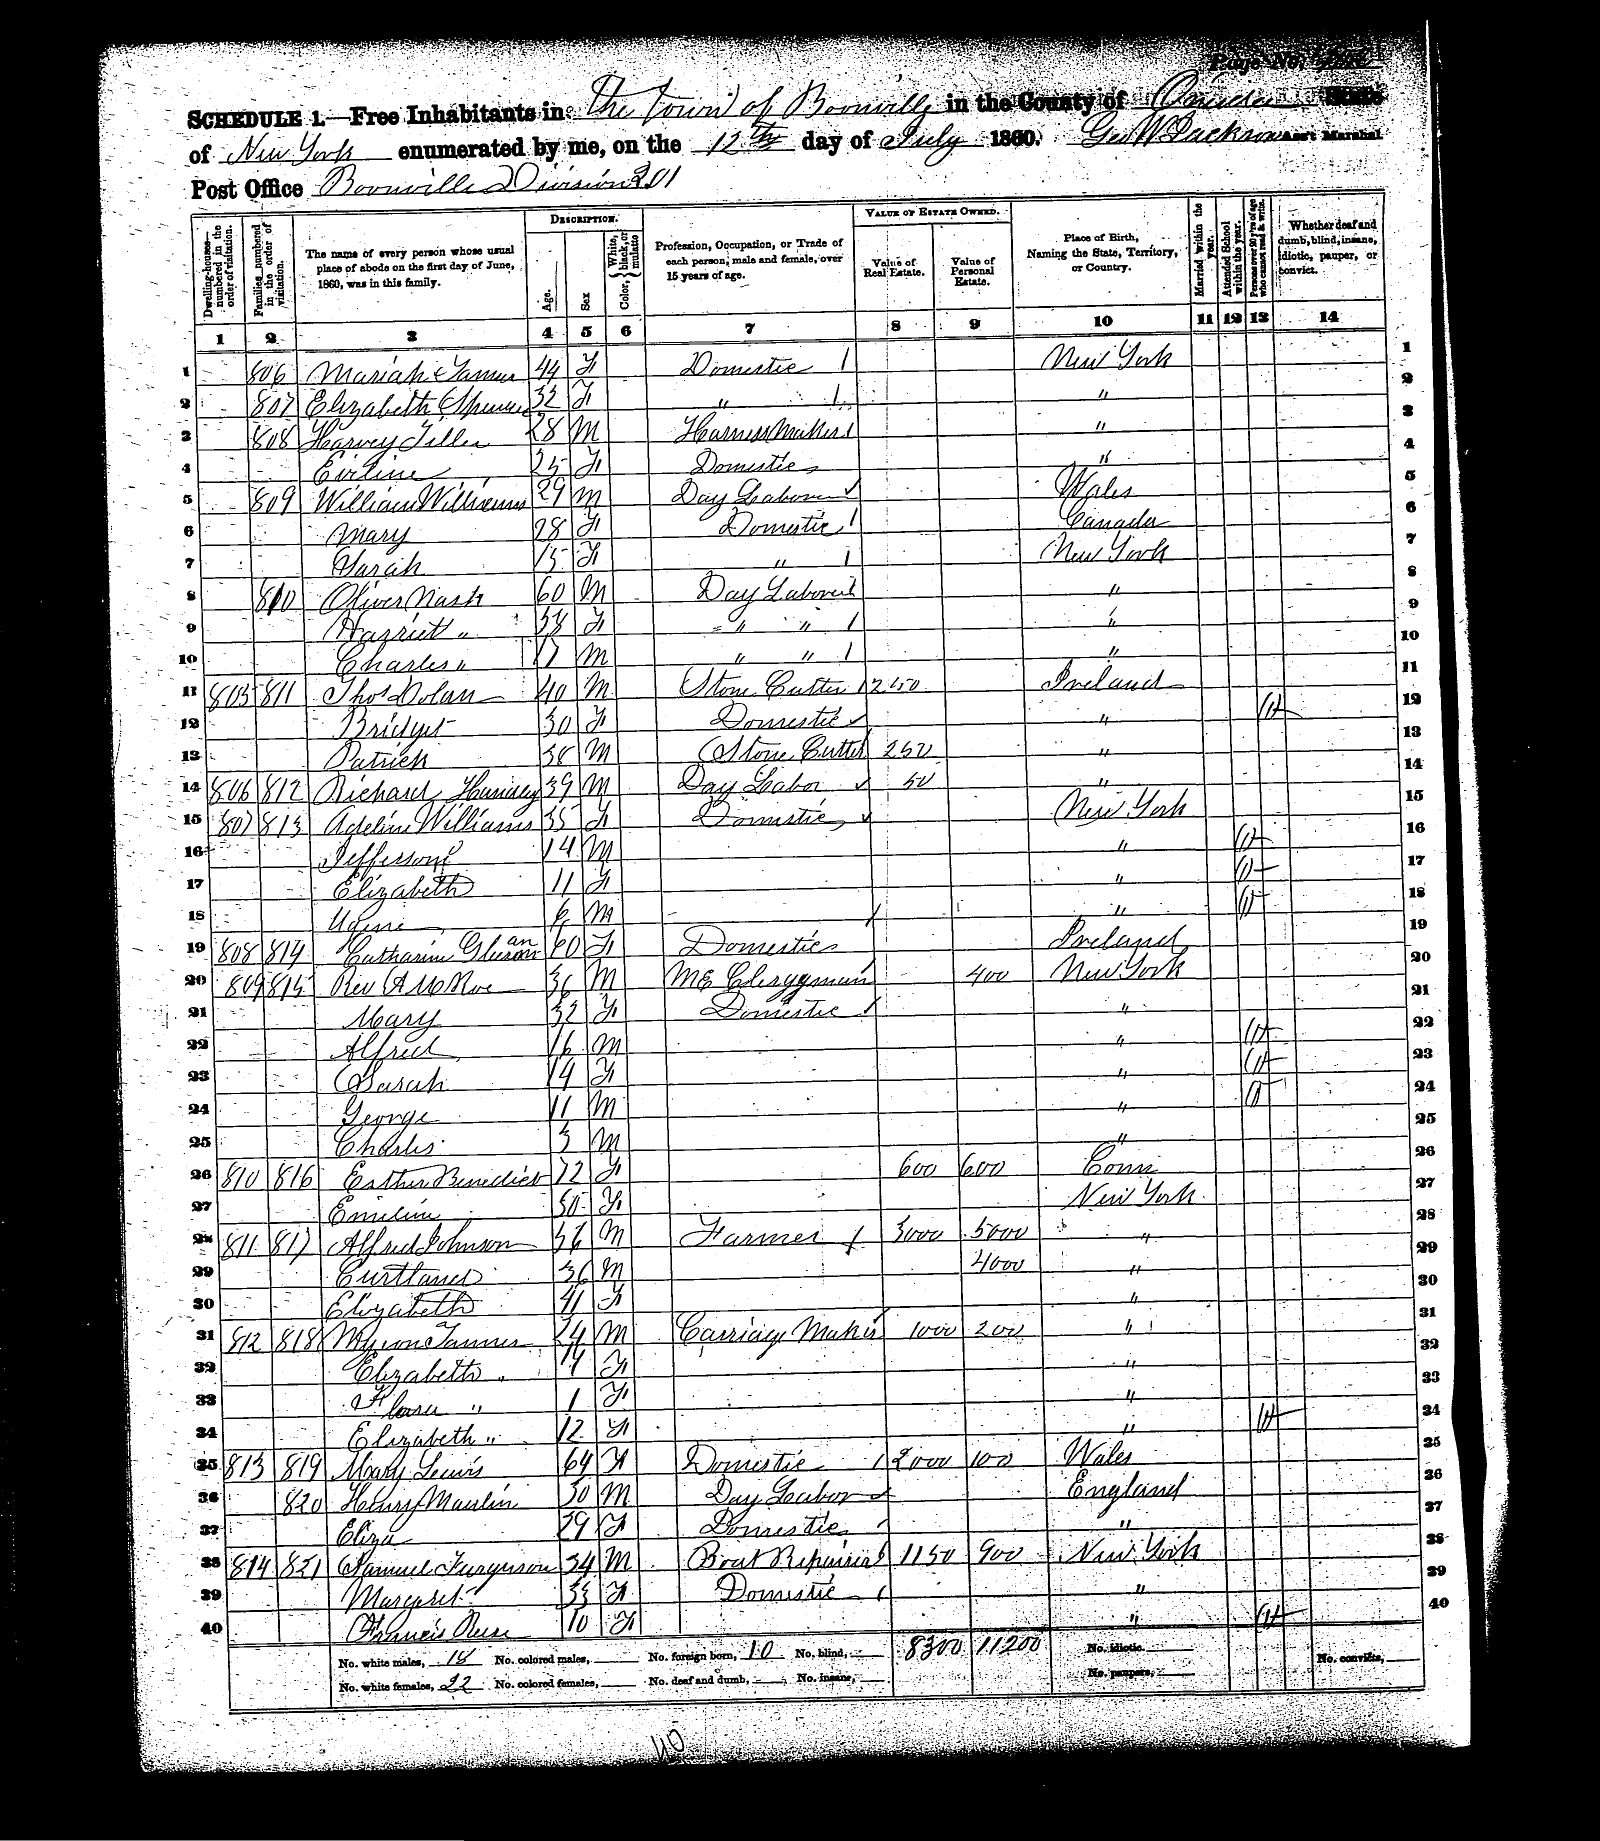 Page No.
SCHEDULE 1.—Free Inhabitants in The Town of Boonville in the County of Oneida State
of New York enumerated by me, on the 12th day of July 1860. Geo W Jackson Ass't Marshal.
Post Office Boonville Division 201
Dwelling-houses—numbered in the order of visitation.
Families numbered in the order of visitation.
The name of every person whose usual place of abode on the first day of June, 1860, was in this family.
DESCRIPTION.
Age.
Sex
Color, White, black, or mulatto
Profession, Occupation, or Trade of each person, male and female, over 15 years of age.
VALUE OF ESTATE OWNED.
Value of Real Estate.
Value of Personal Estate.
Place of Birth, Naming the State, Territory, or Country.
Married within the year.
Attended School within the year.
Persons over 20 y'rs of age who cannot read & write.
Whether deaf and dumb, blind, insane, idiotic, pauper, or convict.
1 2 3 4 5 6 7 8 9 10 11 12 13 14
1 806 Mariah Tanner 44 F Domestic 1 New York 1
2 807 Elizabeth Spencer 32 F " 1 " 2
3 808 Harvey 28 M Harness Maker 1 " 3
4 25 F Domestic " 4
5 809 William Williams 29 M Day Laborer Wales 5
6 Mary 28 F Domestic 1 Canada 6
7 Sarah 15 F " 1 New York 7
8 810 Oliver Nash 60 M Day Laborer " 8
9 Harriet " 58 F " " 1 " 9
10 Charles " 17 M " " 1 " 10
11 805 811 Thos Dolan 40 M Stone Cutter 1 250 Ireland 11
12 Bridget 30 F Domestic " 12
13 Patrick 38 M Stone Cutter 250 " 13
14 806 812 Richard 39 M Day Labor 50 " 14
15 807 813 Adeline Williams 35 F Domestic New York 15
16 Jefferson 14 M " 1 16
17 Elizabeth 11 F " 1 17
18 Ugine 6 M " 1 18
19 808 814 Catharine Gleeson an 60 F Domestic Ireland 19
20 809 815 Rev A M Roe 36 M ME Clergyman 400 New York 20
21 Mary 32 F Domestic " 21
22 Alfred 16 M " 1 22
23 Sarah 14 F " 1 23
24 George 11 M " 1 24
25 Charles 3 M " 25
26 810 816 Esther Benedict 72 F 600 600 Conn 26
27 Emiline 50 F New York 27
28 811 817 Alfred Johnson 56 M Farmer 3000 5000 " 28
29 Curtland 36 M 4000 " 29
30 Elizabeth 41 F " 30
31 812 818 Myron Tanner 24 M Carriage Maker 1000 200 " 31
32 Elizabeth " F " 32
33 Flora " 1 F " 33
34 Elizabeth " 12 F " 1 34
35 813 819 Mary Lewis 64 F Domestic 2000 100 Wales 35
36 820 Henry Maulin 30 M Day Labor England 36
37 Eliza 29 F Domestic " 37
38 814 821 Samuel Furguson 34 M Boat Repairer 1150 900 New York 38
39 Margaret 33 F Domestic " 39
40 Francis 10 F " 1 40
No. white males, 18 No. colored males, No. foreign born, 10 No. blind, 8300 11200 No. idiotic, No. convicts,
No. white females, 22 No. colored females, No. deaf and dumb, No. insane, No. paupers,
40